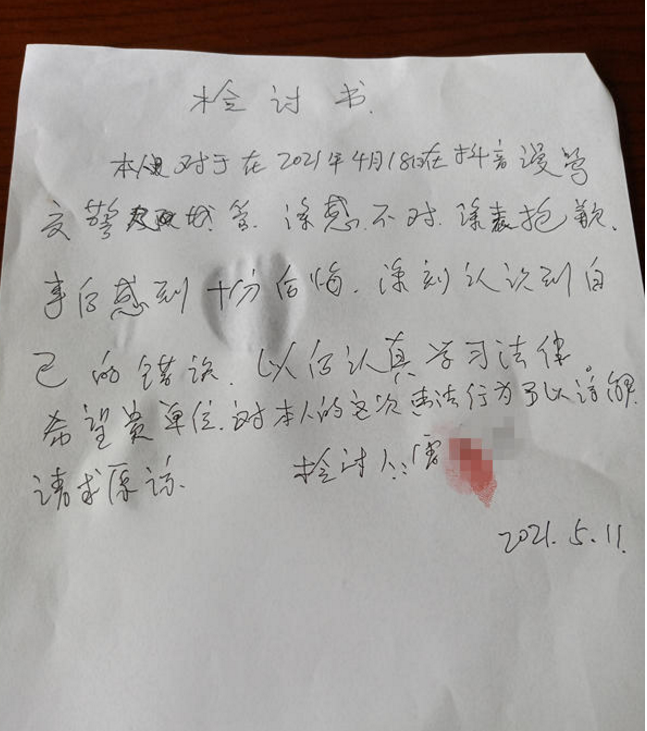 检讨书
本人对于在2021年4月18日在抖音谩骂
交警及城管.深感不对.深表抱歉.
事后感到十分后悔.深刻认识到自
己的错误.以后认真学习法律。
希望贵单位.对本人的这次违法行为予以谅解.
请求原谅.
检讨人:
2021.5.11.